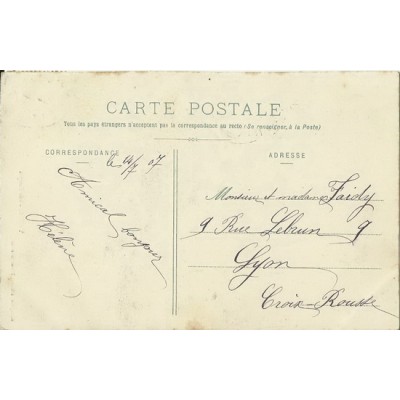 CARTE POSTALE
Tous les pays étrangers n'acceptent pas la correspondance au recto (Se renseigner, à la Poste)
CORRESPONDANCE
ADRESSE
le 7/07
Amical bonjour
Hélène
Monsieur et madame Faidy
9 Rue Lebrun 9
Lyon
Croix-Rousse